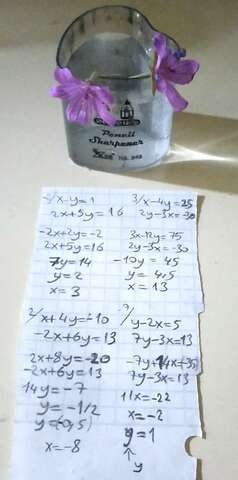 Pencil
Sharpener
No. 949
-2/x-y=1
2x+5y=16
-2x+2y=-2
2x+5y=16
7y=14
y=2
x=3
3/x-4y=25
2y-3x=-30
3x-12y=75
2y-3x=-30
-10y=45
y=4,5
x=13
2/x+4y=-10
-2x+6y=13
2x+8y=-20
-2x+6y=13
14y=-7
y=-1/2
y=(-0,5)
x=-8
-7/y-2x=5
7y-3x=13
-7y+14x=(-35)
7y-3x=13
11x=-22
x=-2
y=1
↑
y